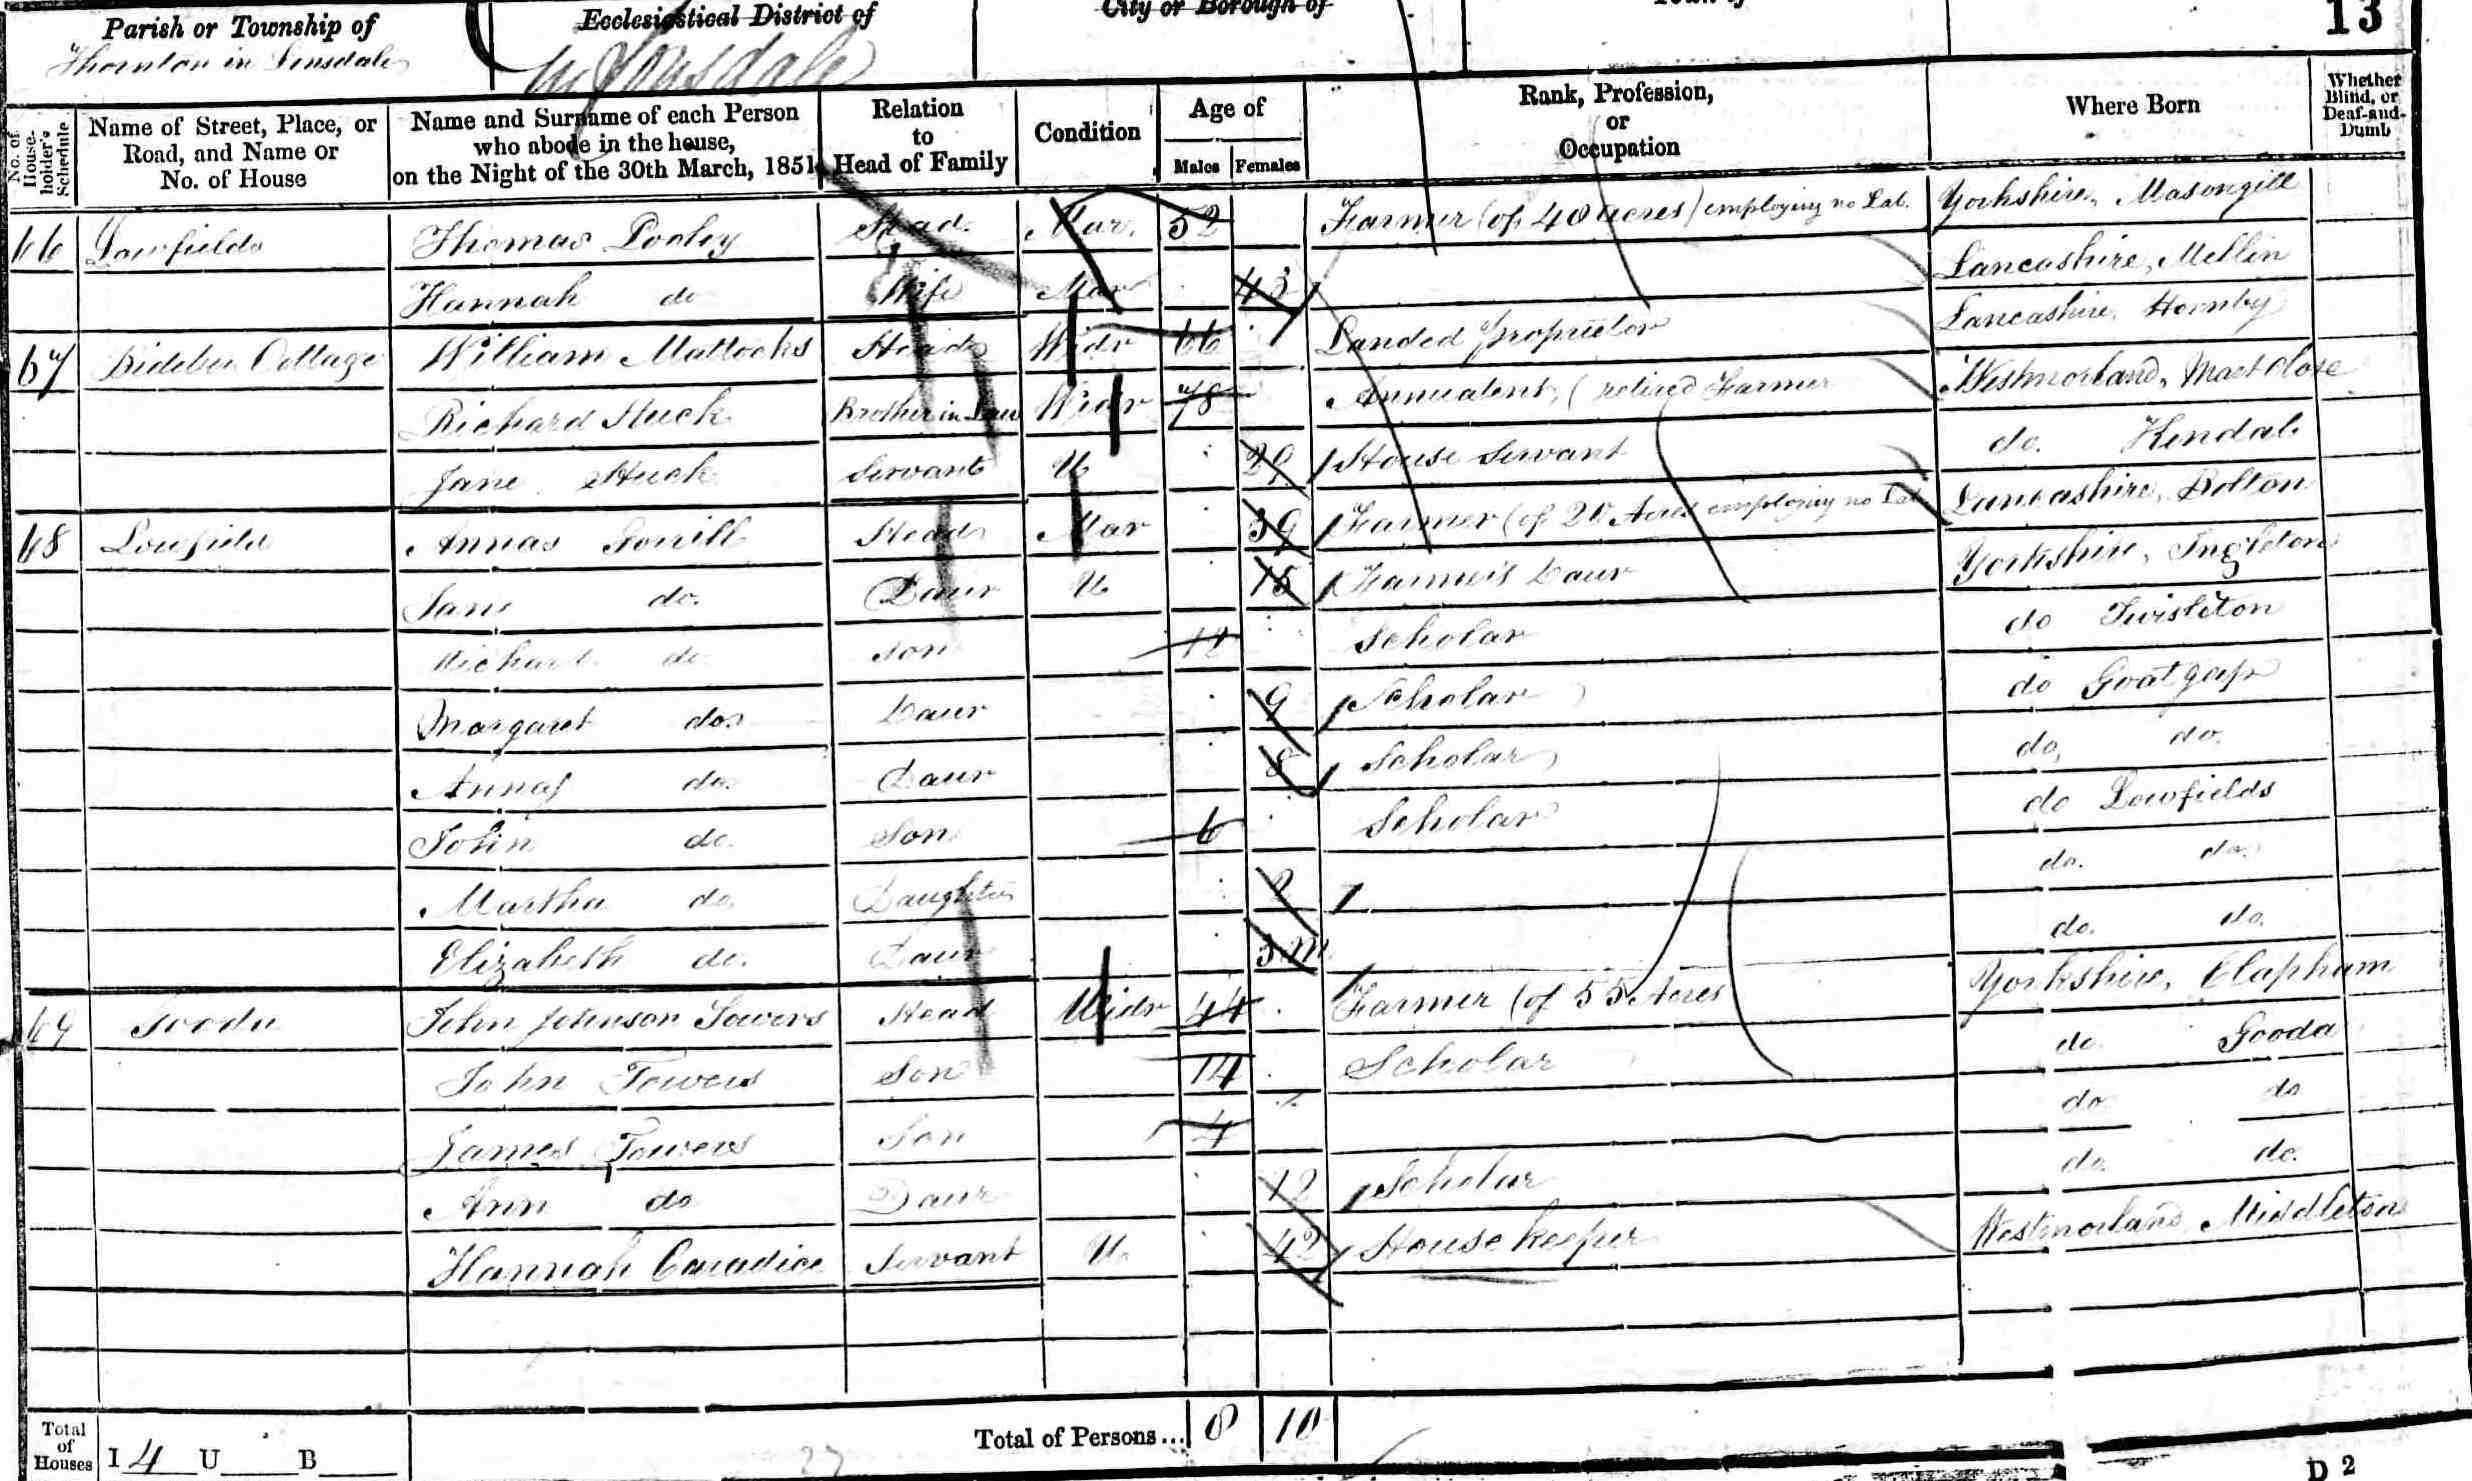 Parish or Township of
Thornton in Lonsdale
Ecclesiastical District of
Lonsdale
City or Borough of
Town of
13
No. of House-holder's Schedule
Name of Street, Place, or Road, and Name or No. of House
Name and Surname of each Person who abode in the house, on the Night of the 30th March, 1851
Relation to Head of Family
Condition
Age of
Males
Females
Rank, Profession, or Occupation
Where Born
Whether Blind, or Deaf-and-Dumb
66 Lowfields Thomas Pooley Head Mar. 52 Farmer (of 40 acres) employing no Lab. Yorkshire, Masongill
Hannah do Wife Mar 43 Lancashire, Mellin
67 Cottage William Mattocks Head Widr 66 Landed proprietor Lancashire, Hornby
Richard Huck Brother in Law Widr 78 Annuatent, (retired Farmer Westmorland,
Jane Huck Servant U 29 House Servant do. Kendal
68 Lowfield Annas Sorrill Head Mar 39 Farmer (of 20 Acres employing no Lab Lancashire, Bolton
Jane do. Daur U 15 Farmer's Daur Yorkshire, Ingleton
Richard do Son 12 Scholar do Twisleton
Margaret do. Daur 9 Scholar do Goatgap
Annas do. Daur 8 Scholar do, do.
John do. Son 6 Scholar do Lowfields
Martha do. Daughter 2 do. do.
Elizabeth do. Daur 3 m do. do.
69 Gooda John Johnson Towers Head Widr 44 Farmer (of 55 Acres Yorkshire, Clapham
John Towers Son 14 Scholar do. Gooda
James Towers Son 4 do do
Ann do Daur 12 Scholar do. do.
Hannah Caradice Servant U. 42 House keeper Westmorland Middleton
Total of Houses I 4 U B
Total of Persons... 8 10
D 2